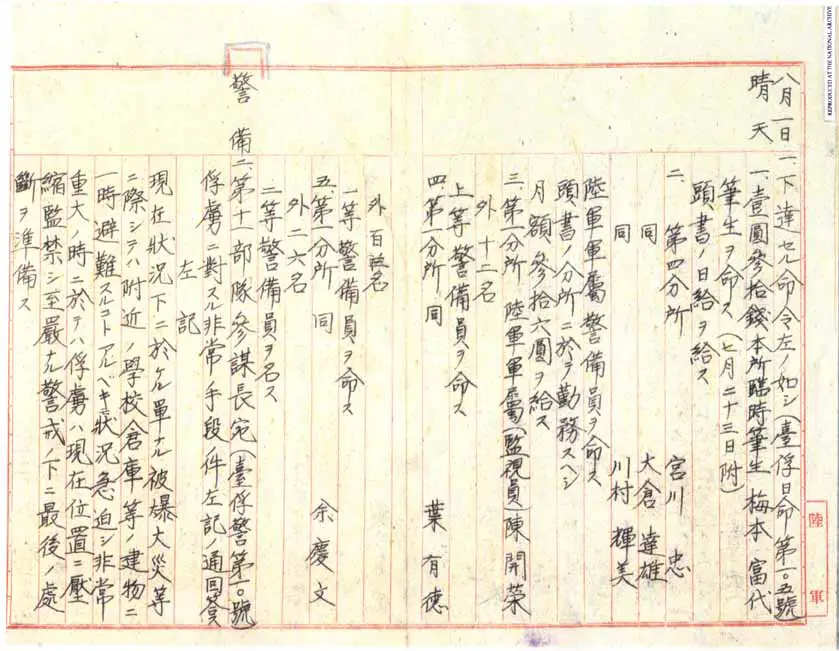 八月一日
晴天
一、下達セル命令左ノ如シ(臺俘日命第一〇五號
一、壹圓參拾錢本所臨時筆生 梅本 富代
筆生ヲ命ス(七月二十三日附)
頭書ノ日給ヲ給ス
二、第四分所 宮川 忠
同 大倉 達雄
同 川村 輝美
陸軍軍屬警備員ヲ命ス
頭書ノ分所ニ於テ勤務スヘシ
月額參拾六圓ヲ給ス
三、第一分所 陸軍軍屬(監視員)陳開榮
外十二名
上等警備員ヲ命ス
四、第一分所 同 葉有德
外百 名
一等警備員ヲ命ス
五、第一分所 同 余慶文
外二六名
二等警備員ヲ名ス
警備二第十一部隊參謀長宛(臺俘警第一〇號
俘虜ニ對スル非常手段件左記ノ通回答
左記
現在狀況下ニ於ケル單ナル被爆大災等
ニ際シテハ附近ノ學校倉庫等ノ建物ニ
一時避難スルコトアルベキモ狀況急迫シ非常
重大ノ時ニ於テハ俘虜ハ現在位置ニ壓
縮監禁シ至嚴ナル警戒ノ下ニ最後ノ處
斷ヲ準備ス
陸軍
REPRODUCED AT THE NATIONAL ARCHIVE